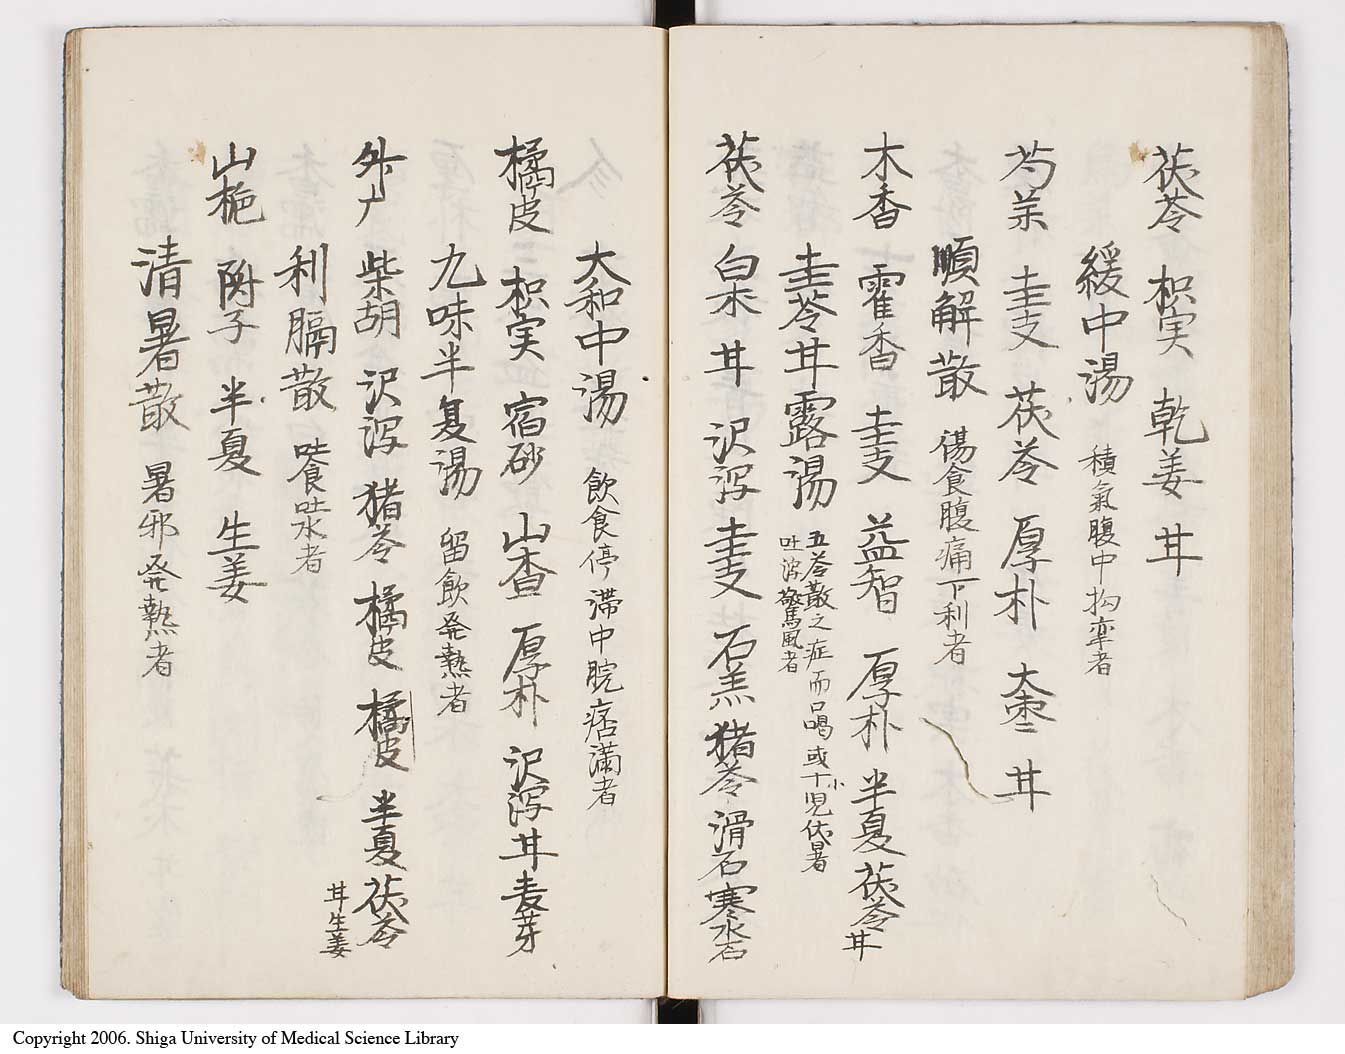 茯苓 枳実 乾姜 甘
緩中湯 積氣腹中拘攣者
芍薬 圭支 茯苓 厚朴 大棗 甘
順解散 傷食腹痛下利者
木香 霍香 圭支 益智 厚朴 半夏 茯苓 甘
圭苓甘露湯 五苓散之症而口喝或小児伏暑
吐瀉驚風者
茯苓 白朮 甘 沢泻 圭支 石羔 猪苓 滑石 寒水石
大和中湯 飲食停滞中脘痞満者
橘皮 枳実 宿砂 山査 厚朴 沢泻 甘 麦芽
九味半夏湯 留飲発熱者
外广 柴胡 沢泻 猪苓 橘皮 橘皮 半夏 茯苓
甘生姜
利膈散 吐水者
山梔 附子 半夏 生姜
清暑散 暑邪発熱者
Copyright 2006. Shiga University of Medical Science Library